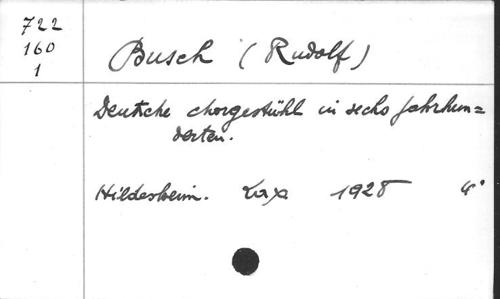 722
160
1
Busch (Rudolf)
Deutsche chorgestühl in sechs Jahrhun=
derten.
Hildesheim. Lax 1928 4°